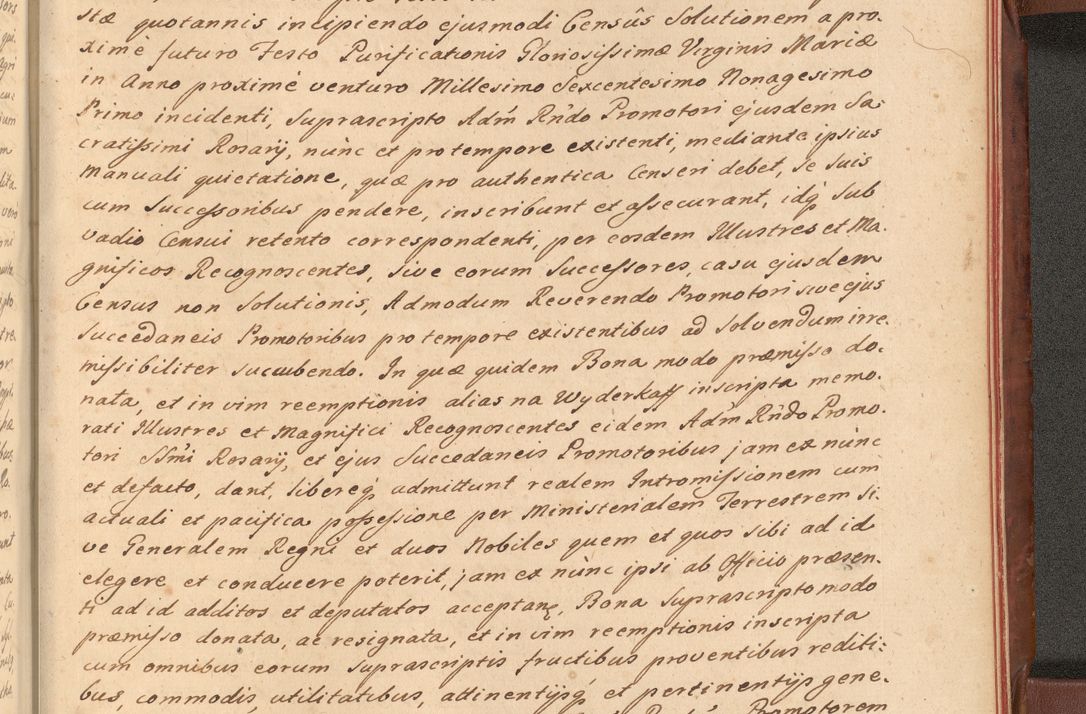 stæ quotannis incipiendo ejusmodi Censûs Solutionem a pro-
ximè futuro Festo Purificationis Gloriosissimæ Virginis Mariæ
in Anno proximè venturo Millesimo Sexcentesimo Nonagesimo
Primo incidenti, Suprascripto Adm̃ Rñdo Promotori ejusdem Sa-
cratissimi Rosarij, nùnc et pro tempore existenti, mediante ipsius
Manuali quietatione, quæ pro authentica Censeri debet, se suis
cum Successoribus pendere, inscribunt et assecurant, idq́ sub
vadio Censui retento correspondenti, per eosdem Illustres et Ma-
gnificos Recognoscentes, sive eorum Successores, casu ejusdem
Census non Solutionis, Admodum Reverendo Promotori sive ejus
Succedaneis Promotoribus pro tempore existentibus ad Solvendum irre-
missibiliter succumbendo. In quæ quidem Bona modo præmisso do-
nata, et in vim reemptionis alias na Wyderkaff inscripta memo-
rati Illustres et Magnifici Recognoscentes eidem Adm̃ Rñdo Promo-
tori SSmi Rosarij, et ejus Succedaneis Promotoribus jam ex nùnc
et defacto, dant, libereq́ admittunt realem Intromissionem cum
actuali et pacifica possessione per Ministerialem Terrestrem Si-
ve Generalem Regni et duos Nobiles quem et quos sibi ad id
elegere et conducere poterit, jam ex nùnc ipsi ab Officio præsen-
ti ad id additos et deputatos acceptanꝫ, Bona Suprascripto modo
præmisso donata, ac resignata, et in vim reemptionis inscripta
cum omnibus eorum Suprascriptis fructibus proventibus rediti-
bus, commodis, utilitatibus, attinentijsq́ et pertinentijs gene-
Promotorem